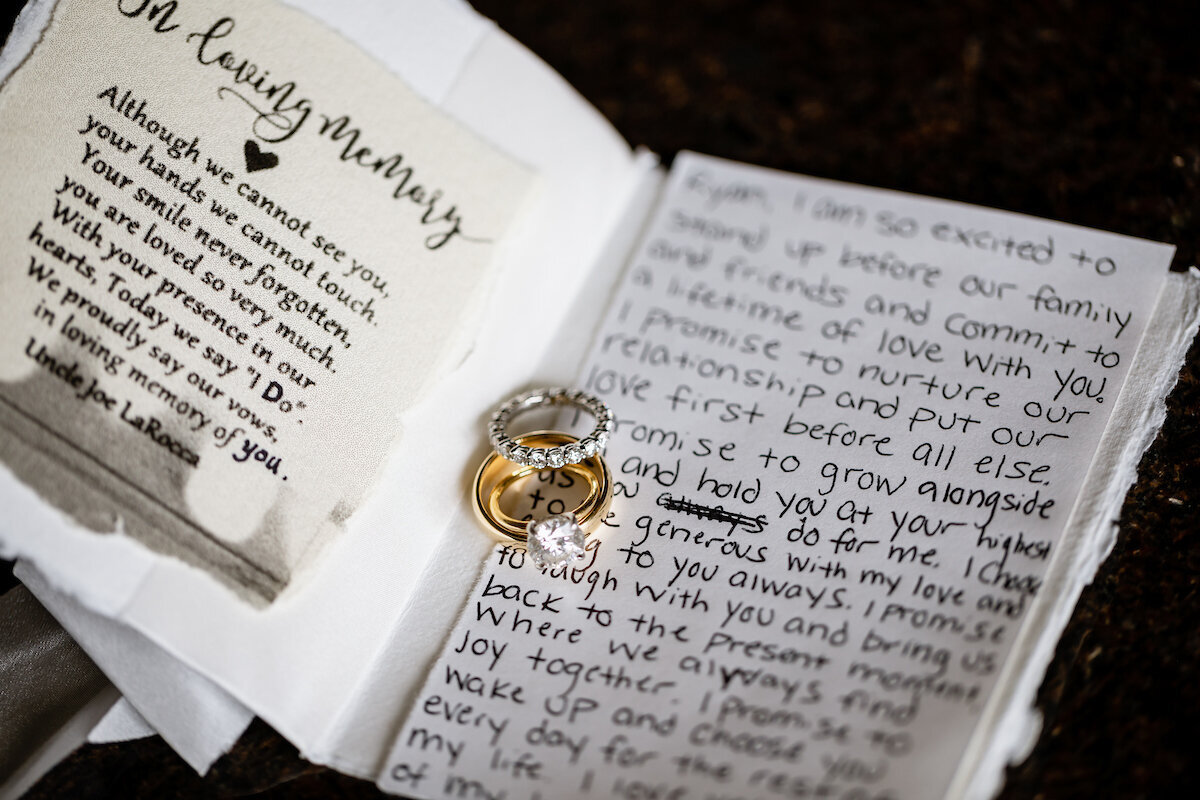 In loving Memory
Although we cannot see you,
your hands we cannot touch.
Your smile never forgotten,
you are loved so very much.
With your presence in our
hearts, Today we say "I Do".
We proudly say our vows,
in loving memory of you.
Uncle Joe LaRocca
Ryan, I am so excited to
stand up before our family
and friends and commit to
a lifetime of love with you.
I promise to nurture our
relationship and put our
love first before all else.
promise to grow alongside
us and hold you at your highest
to you always do for me. I choose
generous with my love and
to you always. I promise
to laugh with you and bring us
back to the present moment,
where we always find
joy together. I promise to
wake up and choose you
every day for the rest
my life. I love
of my